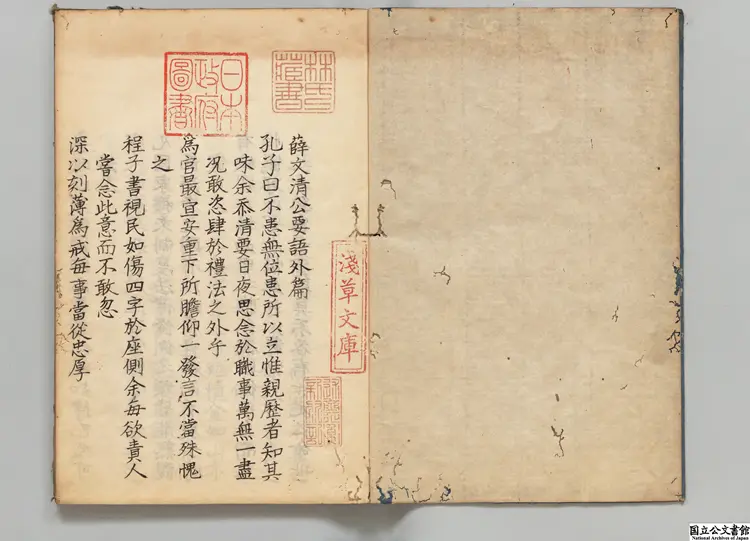 薛文清公要語外篇
孔子曰不患無位患所以立惟親歷者知其
味余忝清要日夜思念於職事萬無一盡
况敢恣肆於禮法之外乎
爲官最宜安重下所瞻仰一發言不當殊愧
之
程子書視民如傷四字於座側余每欲責人
嘗念此意而不敢忽
深以刻薄爲戒每事當從忠厚
林氏藏書
日本政府圖書
淺草文庫
国立公文書館
National Archives of Japan